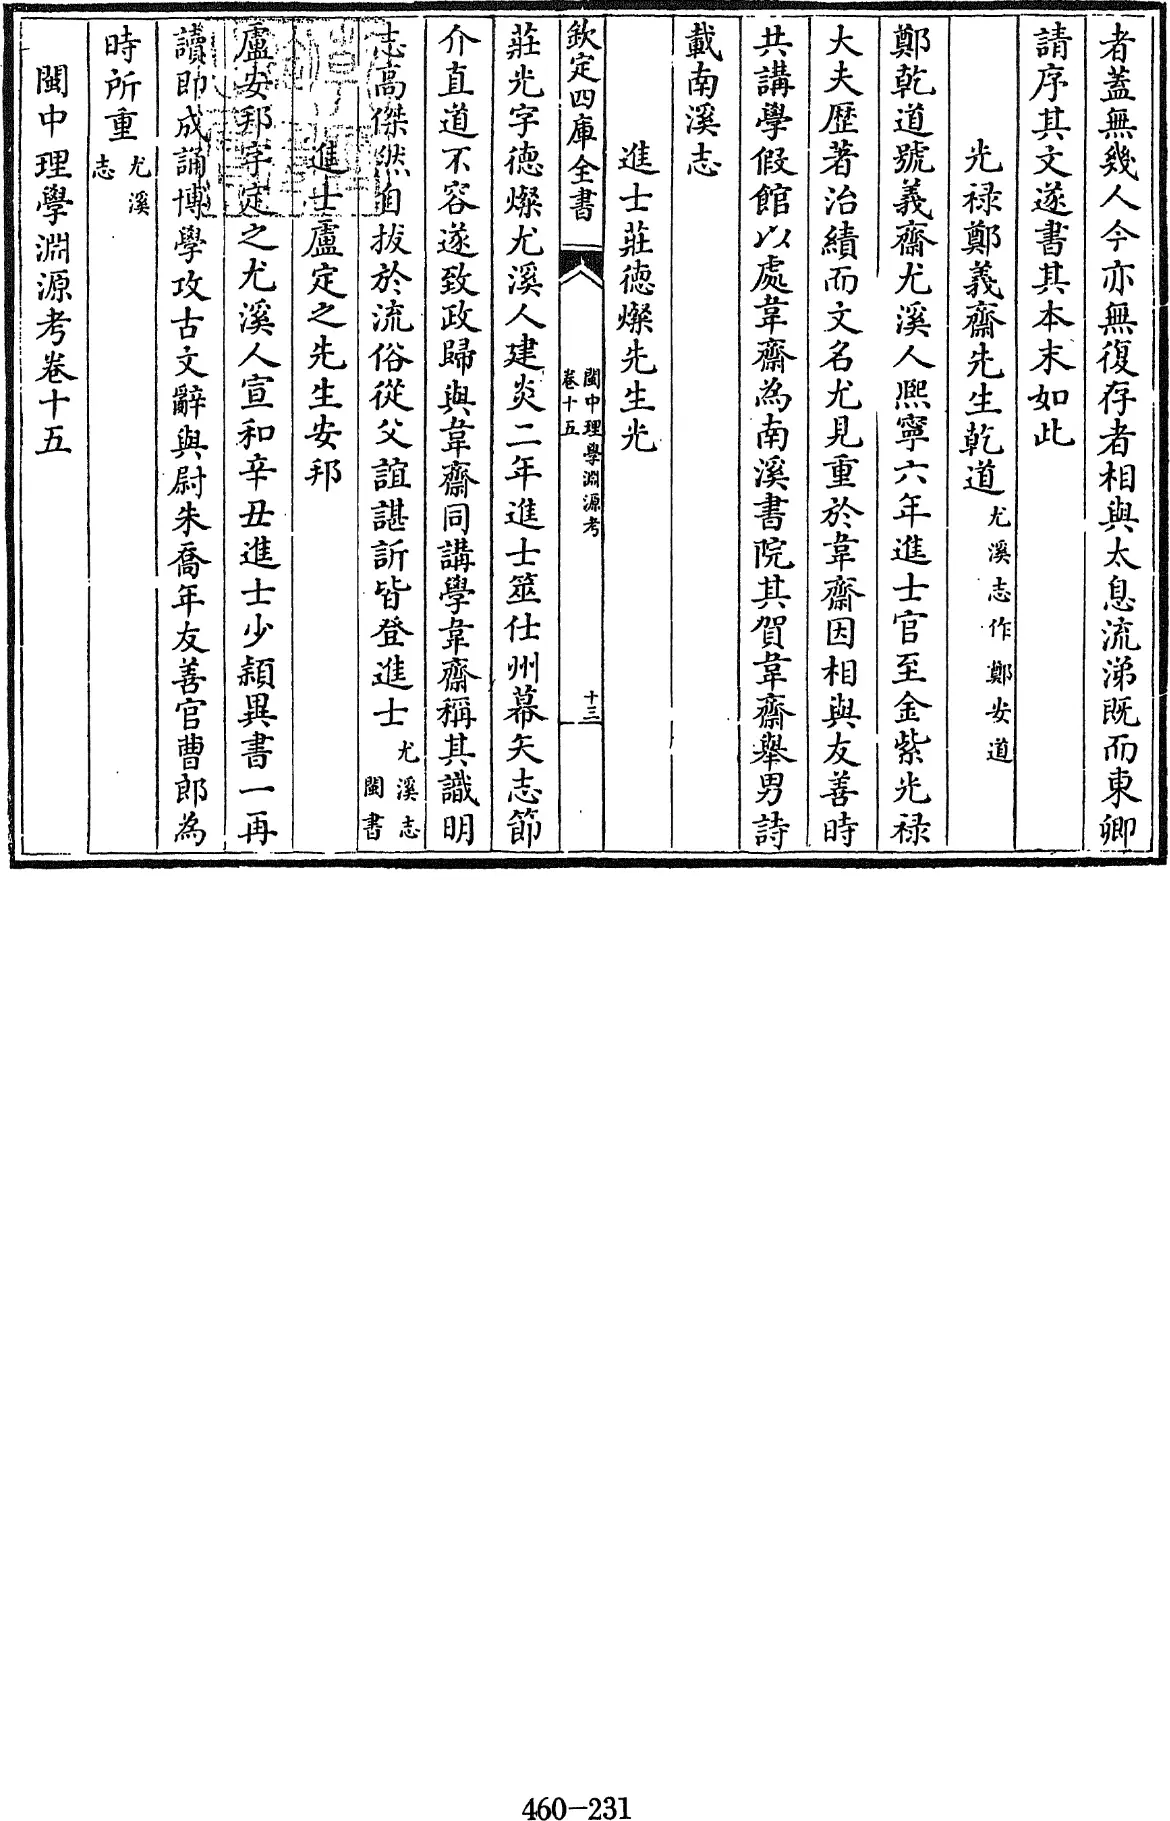 者蓋無幾人今亦無復存者相與太息流涕既而東卿
請序其文遂書其本末如此
光禄鄭義齋先生乾道尤溪志作鄭安道
鄭乾道號義齋尤溪人熙寧六年進士官至金紫光禄
大夫歴著治績而文名尤見重於韋齋因相與友善時
共講學假館以處韋齋為南溪書院其賀韋齋舉男詩
載南溪志
進士莊徳燦先生光
欽定四庫全書
閩中理學淵源考
卷十五
十三
莊光字徳燦尤溪人建炎二年進士筮仕州幕矢志節
介直道不容遂致政歸與韋齋同講學韋齋稱其識明
志高傑然自拔於流俗從父誼諶訢皆登進士尤溪志
閩書
進士盧定之先生安邦
盧安邦字定之尤溪人宣和辛丑進士少穎異書一再
讀即成誦博學攻古文辭與尉朱喬年友善官曹郎為
時所重尤溪
志
閩中理學淵源考卷十五
460-231